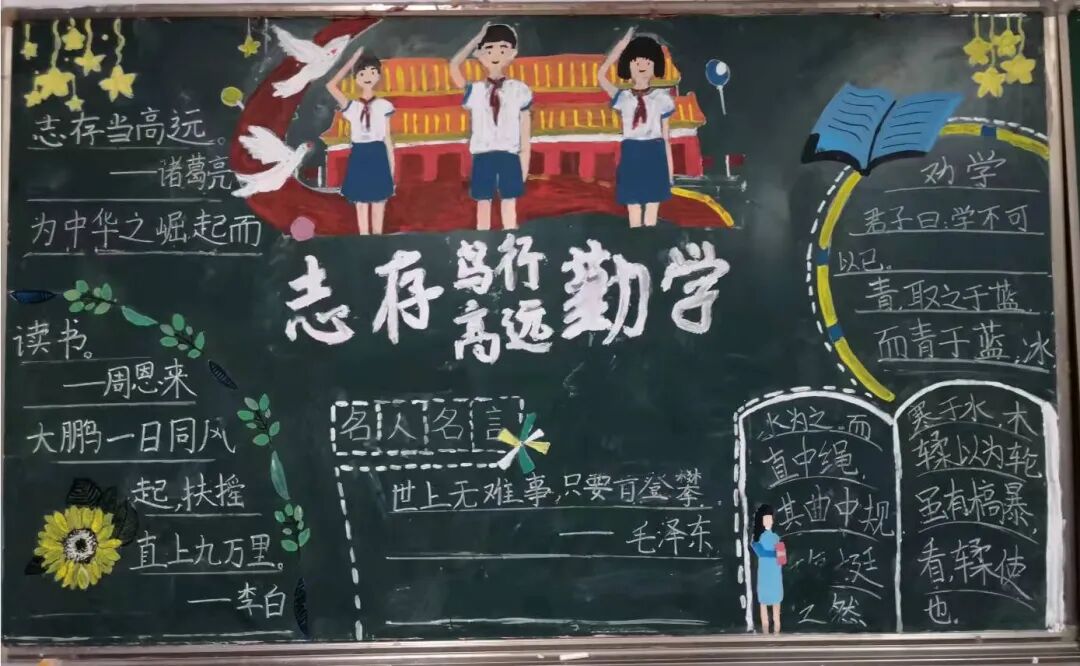 志存当高远。
——诸葛亮
为中华之崛起而
读书。
——周恩来
大鹏一日同风
起,扶摇
直上九万里。
——李白
志存高远
笃行勤学
名人名言
世上无难事,只要肯登攀.
——毛泽东
劝学
君子曰:学不可
以已。
青,取之于蓝,
而青于蓝,冰
水为之,而
寒于水,木
直中绳,
𫐓以为轮
其曲中规
虽有槁暴,
挺
看,𫐓使
之然
也.